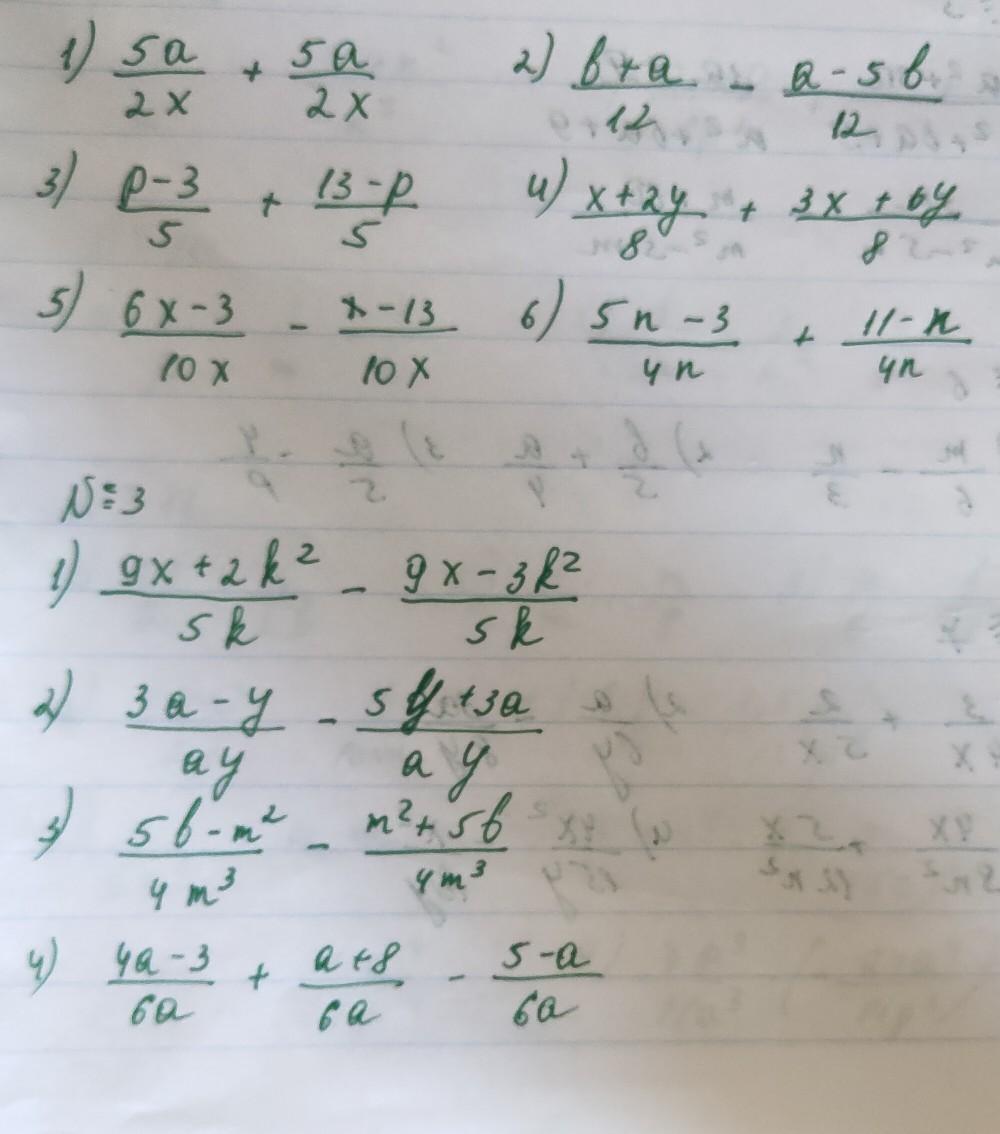 1) 5a/2x + 5a/2x 2) b+a/12 - a-5b/12
3) p-3/5 + 13-p/5 4) x+2y/8 + 3x+6y/8
5) 6x-3/10x - x-13/10x 6) 5n-3/4n + 11-n/4n
N:3
1) 9x+2k²/5k - 9x-3k²/5k
2) 3a-y/ay - 5y+3a/ay
3) 5b-m²/4m³ - m²+5b/4m³
4) 4a-3/6a + a+8/6a - 5-a/6a